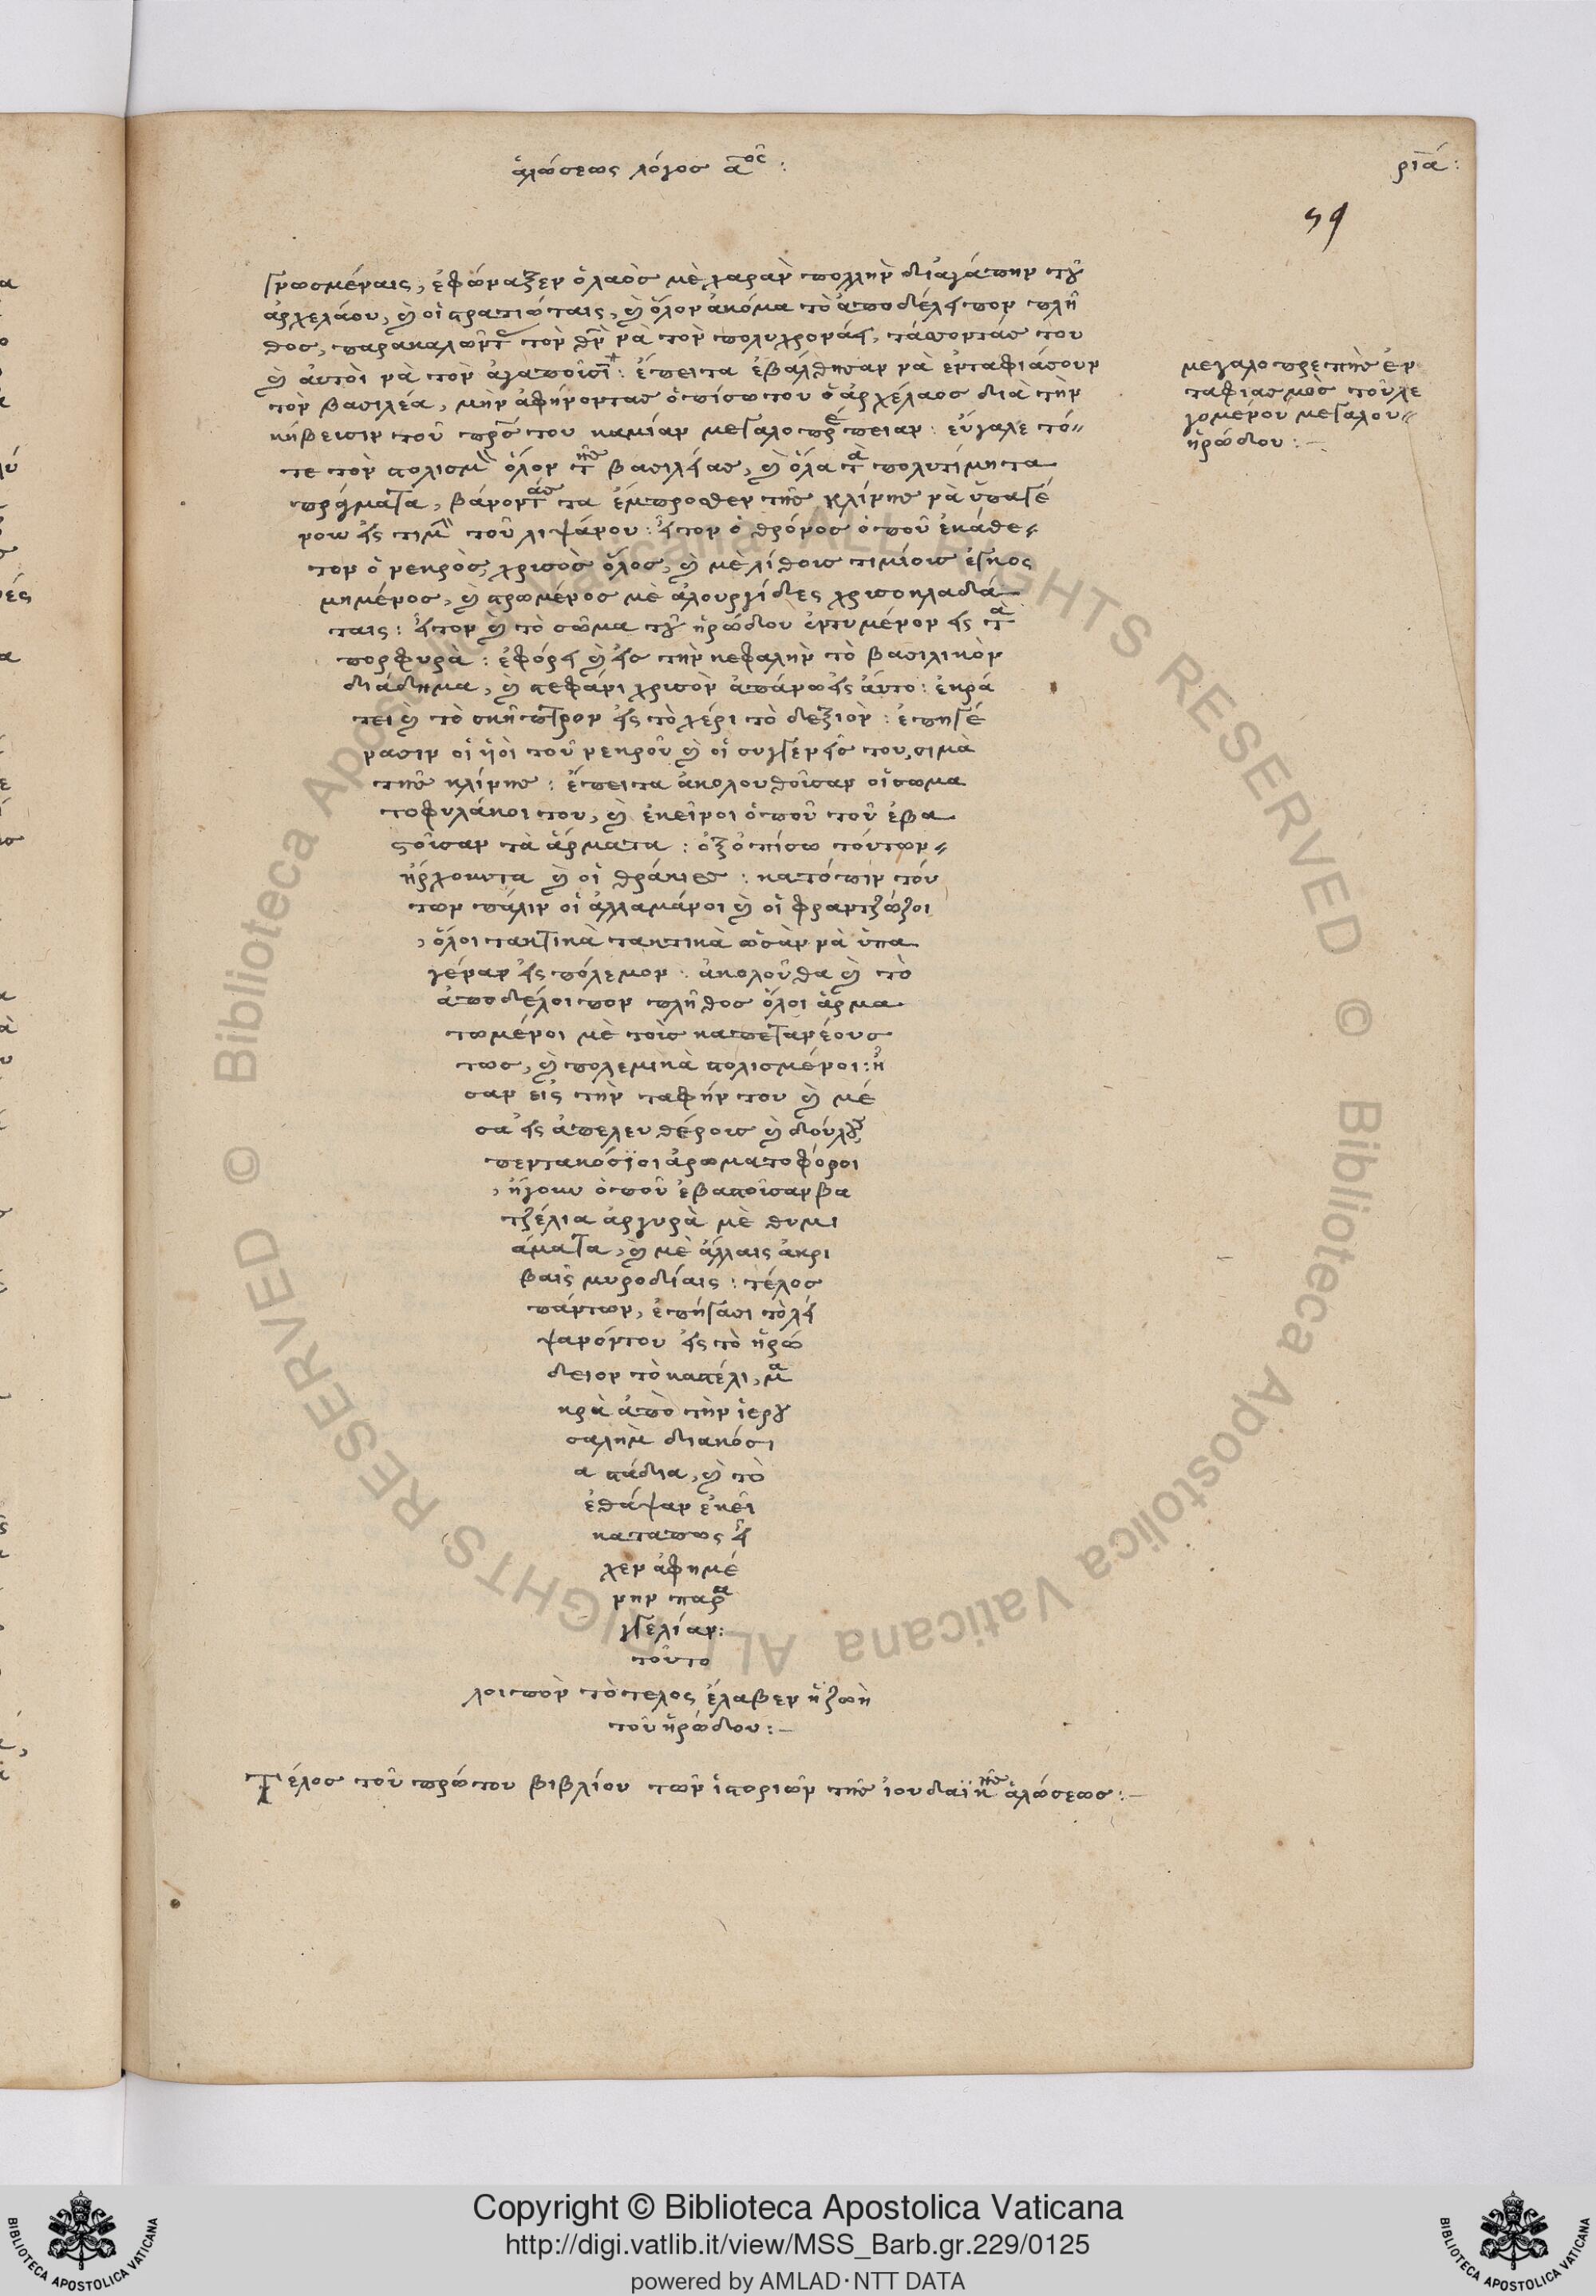 ἁλώσεως λόγος α^ος :
ριά :
59
γνωσμέναις, ἐφώναξεν ὁ λαὸς μὲ χαρὰν πολλὴν δι' ἀγάπην τοῦ
ἀρχελάου, καὶ οἱ στρατιώταις, καὶ ὅλον ἀκόμα τὸ ἀποδέλειπον πλῆ
θος, παρακαλῶντ τὸν θν νὰ τὸν πολυχρονάει, τάσσοντάς του
καὶ ἀυτὸι νὰ τὸν ἀγαποῖσι : ἔπειτα ἐβάλθησαν νὰ ἐνταφιάσουν
τὸν βασιλέα, μὴν ἀφήνοντας ὀπίσω του ὁ ἀρχέλαος διὰ τὴν
κήβευσιν τοῦ πρς του καμίαν μεγαλοπρέπειαν : εὔγαλε τό-
τε τὸν στολισμὸ ὅλον τῆς βασιλείας, καὶ ὅλα τὰ πολυτίμητα
πράγματα, βάνοντάς τα ἔμπροσθεν τῆς κλίνης νὰ ὑπαγέ
νουν εἰς τιμὴ τοῦ λιψάνου : εἶτον ὁ θρόνος ὁποῦ ἐκάθε-
τον ὁ νεκρὸς, χρισὸς ὅλος, καὶ μὲ λίθοις τιμίοις ἐγκος
μημένος, καὶ στρωμένος μὲ ἁλουργίδες χρισοκλαδιά
ταις : εἶτον καὶ τὸ σῶμα τοῦ ἡρώδου ἐντυμένον εἰς τὰ
πορφυρὰ : ἐφόρει καὶ εἰς τὴν κεφαλὴν τὸ βασιλικὸν
διάδημα, καὶ στεφάνι χρισὸν ἀπάνω εἰς ἀυτο : ἐκρά
τει καὶ τὸ σκῆπτρον εἰς τὸ χέρι τὸ δεξιὸν : ἐπηγέ
νασιν οἱ ὑιὸι τοῦ νεκροῦ καὶ οἱ συγγενεῖς του, σιμὰ
τῆς κλίνης : ἔπειτα ἀκολουθοῖσαν οἱ σωμα
τοφυλάκοι του, καὶ ἐκεῖνοι ὁποῦ τοῦ ἐβα
ςοῖσαν τὰ ἄρματα : ὀξοπίσω τούτων-
ἤρχουντα καὶ οἱ θράκιες : κατόπιν τού
των πάλιν οἱ ἀλλαμάνοι καὶ οἱ φραντζῶζοι
, ὅλοι τακτικὰ τακτικὰ ὡσὰν νὰ ὑπα
γέναν εἰς πόλεμον : ἀκολοῦθα καὶ τὸ
ἀποδέλοιπον πλῆθος ὅλοι ἁρμα
τωμένοι μὲ τοὶς καπεταναίους
τως, καὶ πολεμικὰ στολισμένοι : ἦ
σαν εἰς τὴν ταφήν του καὶ μέ
σα εἰς ἀπελευθέροις καὶ δούλους
πεντακόσϊοι ἀρωματοφόροι
, ἤγουν ὁποῦ ἐβαστοῖσαν βα
τζέλια ἀργυρὰ μὲ θυμι
άματα, καὶ μὲ ἄλλαις ἀκρι
βαῖς μυροδίαις : τέλος
πάντων, ἐπήγασι τὸ λεί
ψανόντου εἰς τὸ ἡρώ
δειον τὸ καστέλι, μα
κρὰ ἀπὸ τὴν ἱερου
σαλὴμ διακόσι
α στάδια, καὶ τὸ
ἐθάψαν ἐκεῖ
καταπως εἶ
χεν ἀφημέ
νην παρα
γγελίαν :
τοῦτο
λοιπὸν τὸ τελος ἔλαβεν ἡ ζωὴ
τοῦ ἡρώδου : —
Τέλος τοῦ πρώτου βιβλίου τῶν ἱστοριῶν τῆς ἰουδαϊκῆς ἁλώσεως : —
μεγαλοπρεπὴς ἐν
ταφιασμὸς τοῦ λε
γομένου μεγάλου-
ἡρώδου : —
Copyright © Biblioteca Apostolica Vaticana
http://digi.vatlib.it/view/MSS_Barb.gr.229/0125
powered by AMLAD·NTT DATA
BIBLIOTECA APOSTOLICA VATICANA
BIBLIOTECA APOSTOLICA VATICANA
© Biblioteca Apostolica Vaticana ALL RIGHTS RESERVED
© Biblioteca Apostolica Vaticana ALL RIGHTS RESERVED